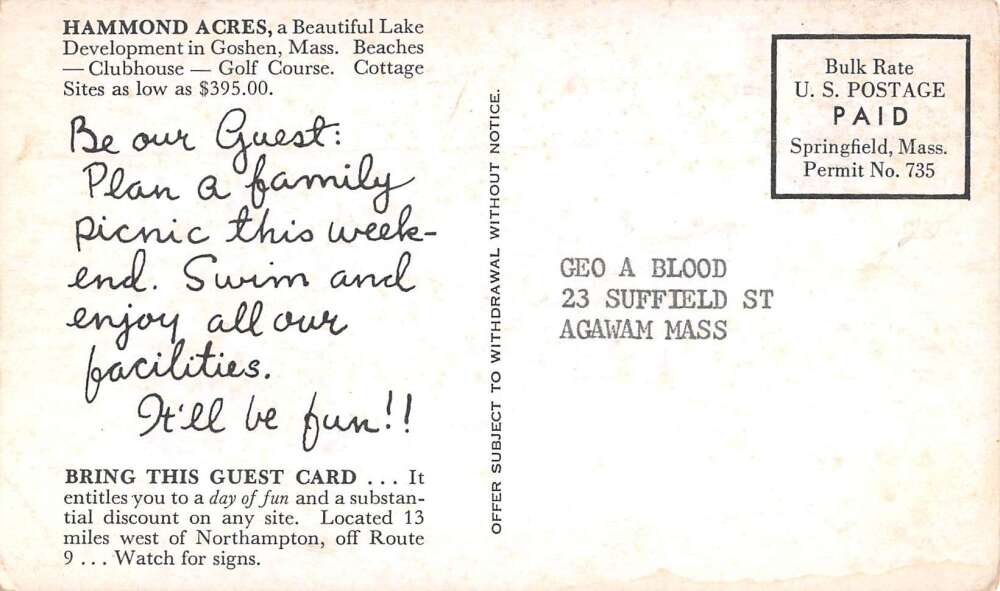 HAMMOND ACRES, a Beautiful Lake
Development in Goshen, Mass. Beaches
— Clubhouse — Golf Course. Cottage
Sites as low as $395.00.
Be our Guest:
Plan a family
picnic this week-
end. Swim and
enjoy all our
facilities.
It'll be fun!!
BRING THIS GUEST CARD . . . It
entitles you to a day of fun and a substan-
tial discount on any site. Located 13
miles west of Northampton, off Route
9 . . . Watch for signs.
OFFER SUBJECT TO WITHDRAWAL WITHOUT NOTICE.
Bulk Rate
U. S. POSTAGE
PAID
Springfield, Mass.
Permit No. 735
GEO A BLOOD
23 SUFFIELD ST
AGAWAM MASS